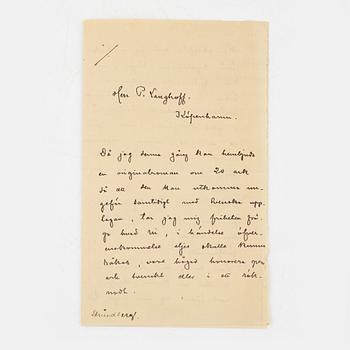 Herr P. Langhoff.
Köpenhamn.
Då jag denna gång kan hembjuda
en originalroman om 20 ark
så att den kan utkomma un-
gefär samtidigt med Svenska upp-
lagan, tar jag mig friheten frå-
ga hvad Ni, i händelse öfver-
enskommelse eljes skulle kunna
träffas, vore högad honorera per
ark Svenskt eller i ett
Strindberg